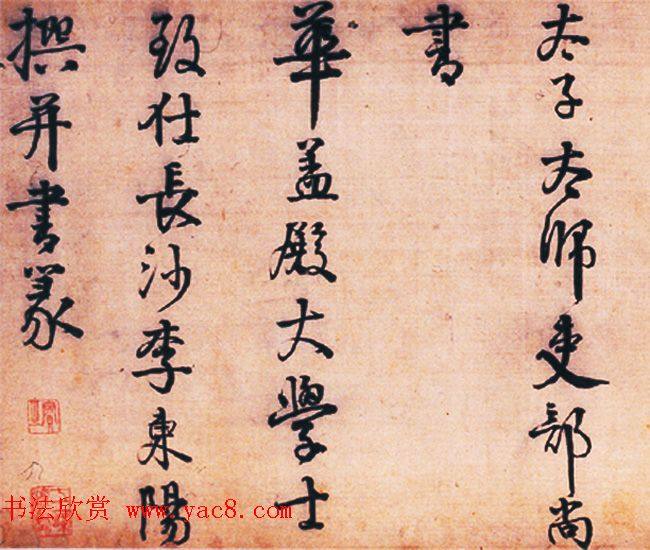 太子太師吏部尚
書
華盖殿大學士
致仕長沙李東陽
撰并書篆
书法欣赏 www.yac8.com